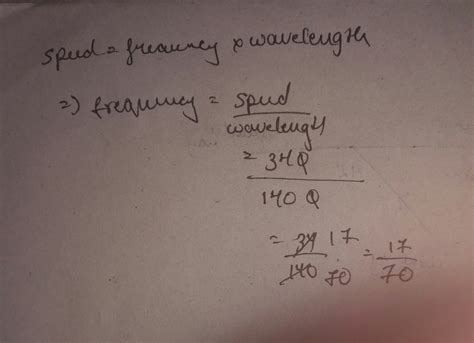 speed = frequency × wavelength
=) frequency = speed
wavelength
= 340
140 0
= 34 17 = 17
140 70 70